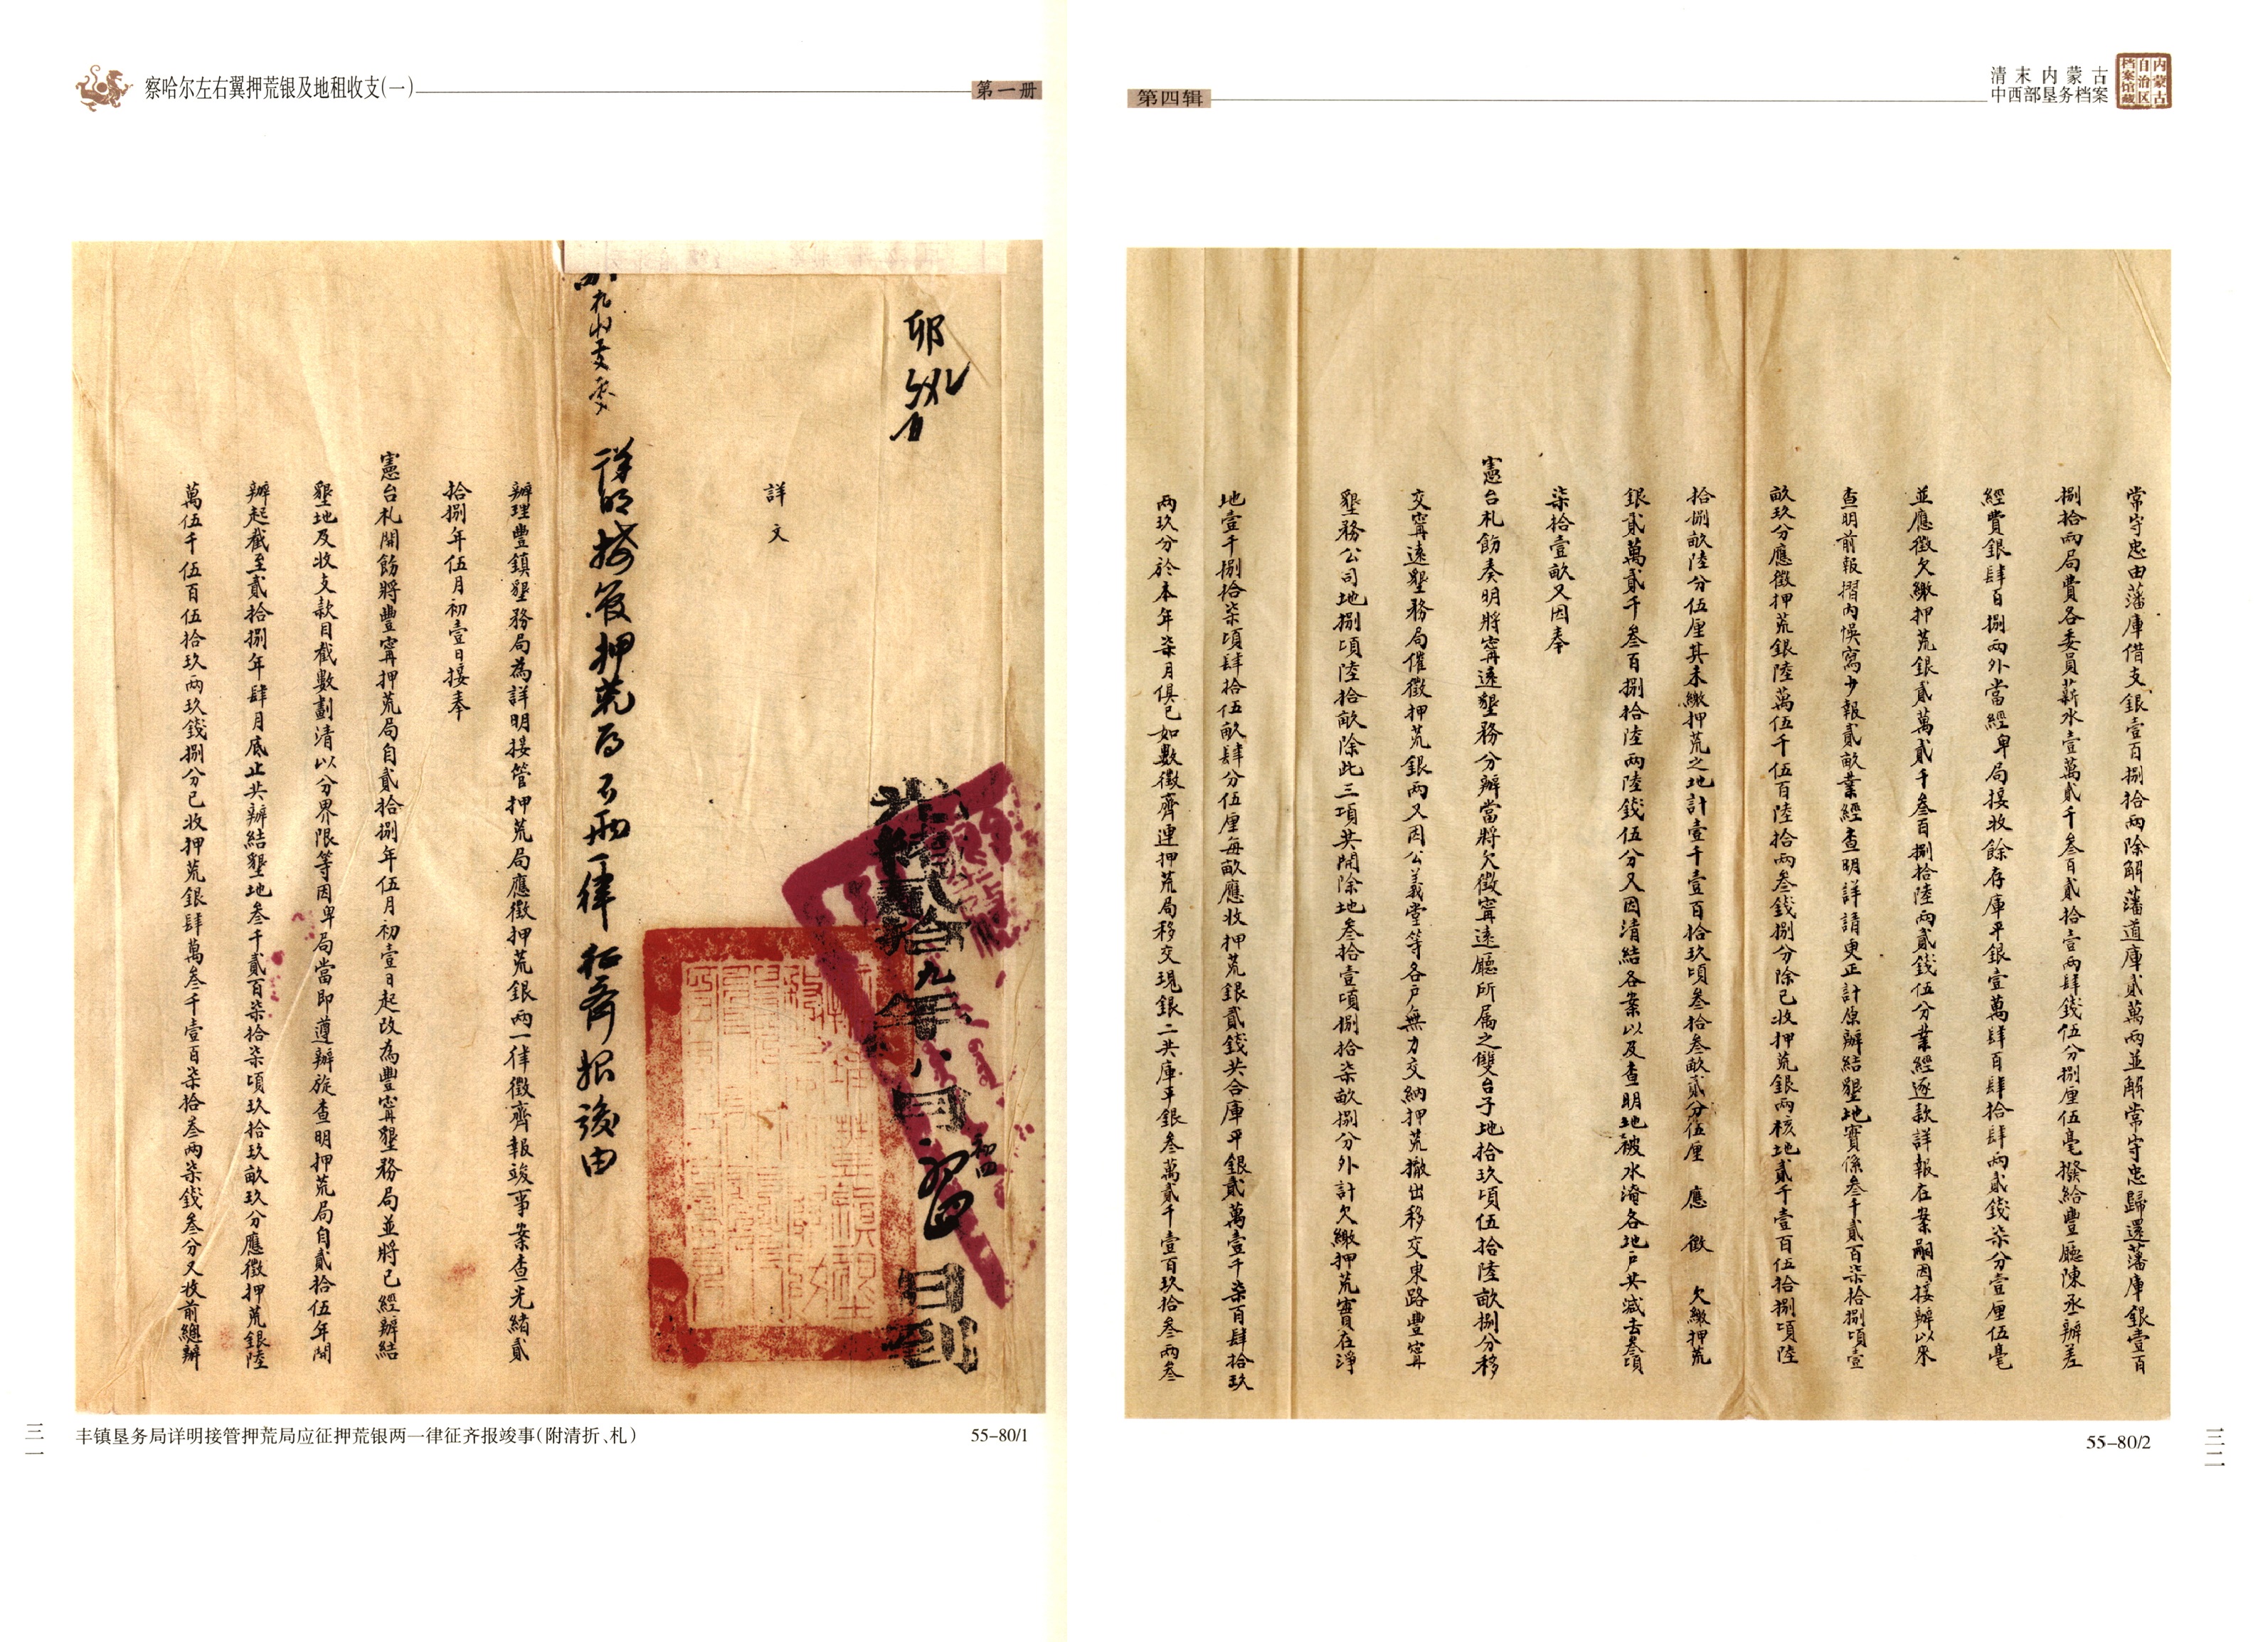 察哈尔左右翼押荒银及地租收支(一)
第一册
詳文
詳明接管押荒局
一律征齊報竣由
光緒貳拾九年八月初四日到
辦理豐鎮墾務局為詳明接管押荒局應徵押荒銀兩一律徵齊報竣事案查光緒貳
拾捌年伍月初壹日接奉
憲台札開飭將豐寗押荒局自貳拾捌年伍月初壹日起改為豐寗墾務局並將已經辦結
墾地及收支款目截數劃清以分界限等因卑局當即遵辦旋查明押荒局自貳拾伍年開
辦起截至貳拾捌年肆月底止共辦結墾地叁千貳百柒拾柒頃玖拾玖畝玖分應徵押荒銀陸
萬伍千伍百伍拾玖兩玖錢捌分已收押荒銀肆萬叁千壹百柒拾叁兩柒錢叁分又收前總辦
丰镇垦务局详明接管押荒局应征押荒银两一律征齐报竣事(附清折、札)
55-80/1
三一
第四辑
清末内蒙古
中西部垦务档案
内蒙古自治区档案馆藏
常守忠由藩庫借支銀壹百捌拾兩除解藩道庫貳萬兩並解常守忠歸還藩庫銀壹百
捌拾兩局費各委員薪水壹萬貳千叁百貳拾壹兩肆錢伍分捌厘伍毫撥給豐廳陳丞辦差
經費銀肆百捌兩外當經卑局接收餘存庫平銀壹萬肆百肆拾肆兩貳錢柒分壹厘伍毫
並應徵欠繳押荒銀貳萬貳千叁百捌拾陸兩貳錢伍分業經逐款詳報在案嗣因接辦以來
查明前報摺內悞寫少報貳畝業經查明詳請更正計原辦結墾地實係叁千貳百柒拾捌頃壹
畝玖分應徵押荒銀陸萬伍千伍百陸拾兩叁錢捌分除已收押荒銀兩核地貳千壹百伍拾捌頃陸
拾捌畝陸分伍厘其未繳押荒之地計壹千壹百拾玖頃叁拾叁畝貳分伍厘應徵欠繳押荒
銀貳萬貳千叁百捌拾陸兩陸錢伍分又因清結各案以及查明地被水淹各地戶共減去叁頃
柒拾壹畝又因奉
憲台札飭奏明將寗遠墾務分辦當將欠徵寗遠廳所属之雙台子地拾玖頃伍拾陸畝捌分移
交寗遠墾務局催徵押荒銀兩又因公義堂等各戶無力交納押荒撤出移交東路豐寗
墾務公司地捌頃陸拾畝除此三項共開除地叁拾壹頃捌拾柒畝捌分外計欠繳押荒實在淨
地壹千捌拾柒頃肆拾伍畝肆分伍厘每畝應收押荒銀貳錢共合庫平銀貳萬壹千柒百肆拾玖
兩玖分於本年柒月俱已如數徵齊連押荒局移交現銀二共庫平銀叁萬貳千壹百玖拾叁兩叁
55-80/2
三二